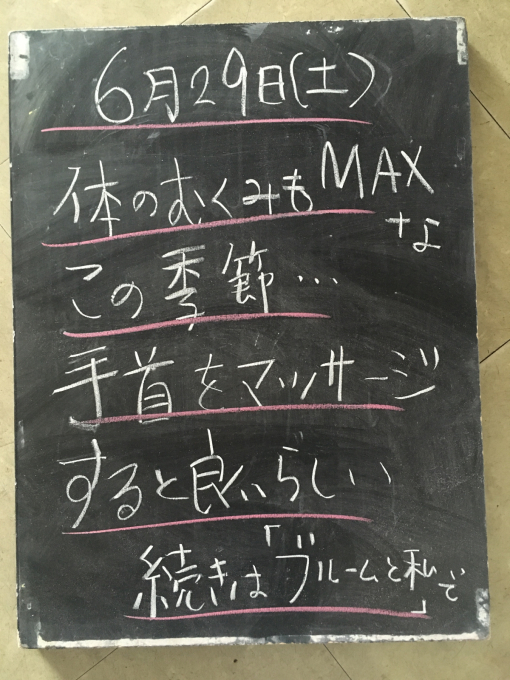 6月29日(土)
体のむくみもMAXな
この季節…
手首をマッサージ
すると良いらしい
続きは「ブルームと私」で